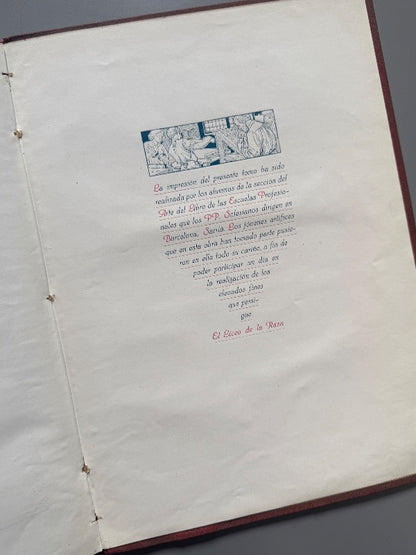 La impresión del presente tomo ha sido
realizada por los alumnos de la sección del
Arte del Libro de las Escuelas Profesio-
nales que los PP. Salesianos dirigen en
Barcelona, Sarriá. Los jóvenes artífices
que en esta obra han tomado parte pusie-
ron en ella todo su cariño, a fin de
poder participar un día en
la realización de los
elevados fines
que persi-
gue
El Liceo de la Raza